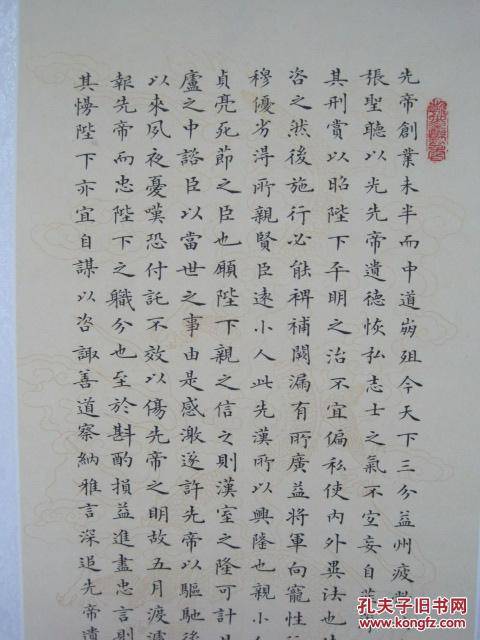 先帝創業未半而中道崩殂今天下三分益州疲
張聖聽以光先帝遺德恢私志士之氣不宜妄自菲
其刑賞以昭陛下平明之治不宜偏私使内外異法也
咨之然後施行必能裨補闕漏有所廣益將軍向寵性
穆優劣得所親賢臣遠小人此先漢所以興隆也親小
貞亮死節之臣也願陛下親之信之則漢室之隆可計
廬之中諮臣以當世之事由是感激遂許先帝以驅馳後
以來夙夜憂嘆恐付託不效以傷先帝之明故五月渡瀘
報先帝而忠陛下之職分也至於斟酌損益進盡忠言則
其陛下亦宜自謀以咨諏善道察納雅言深追先帝遺
孔夫子旧书网